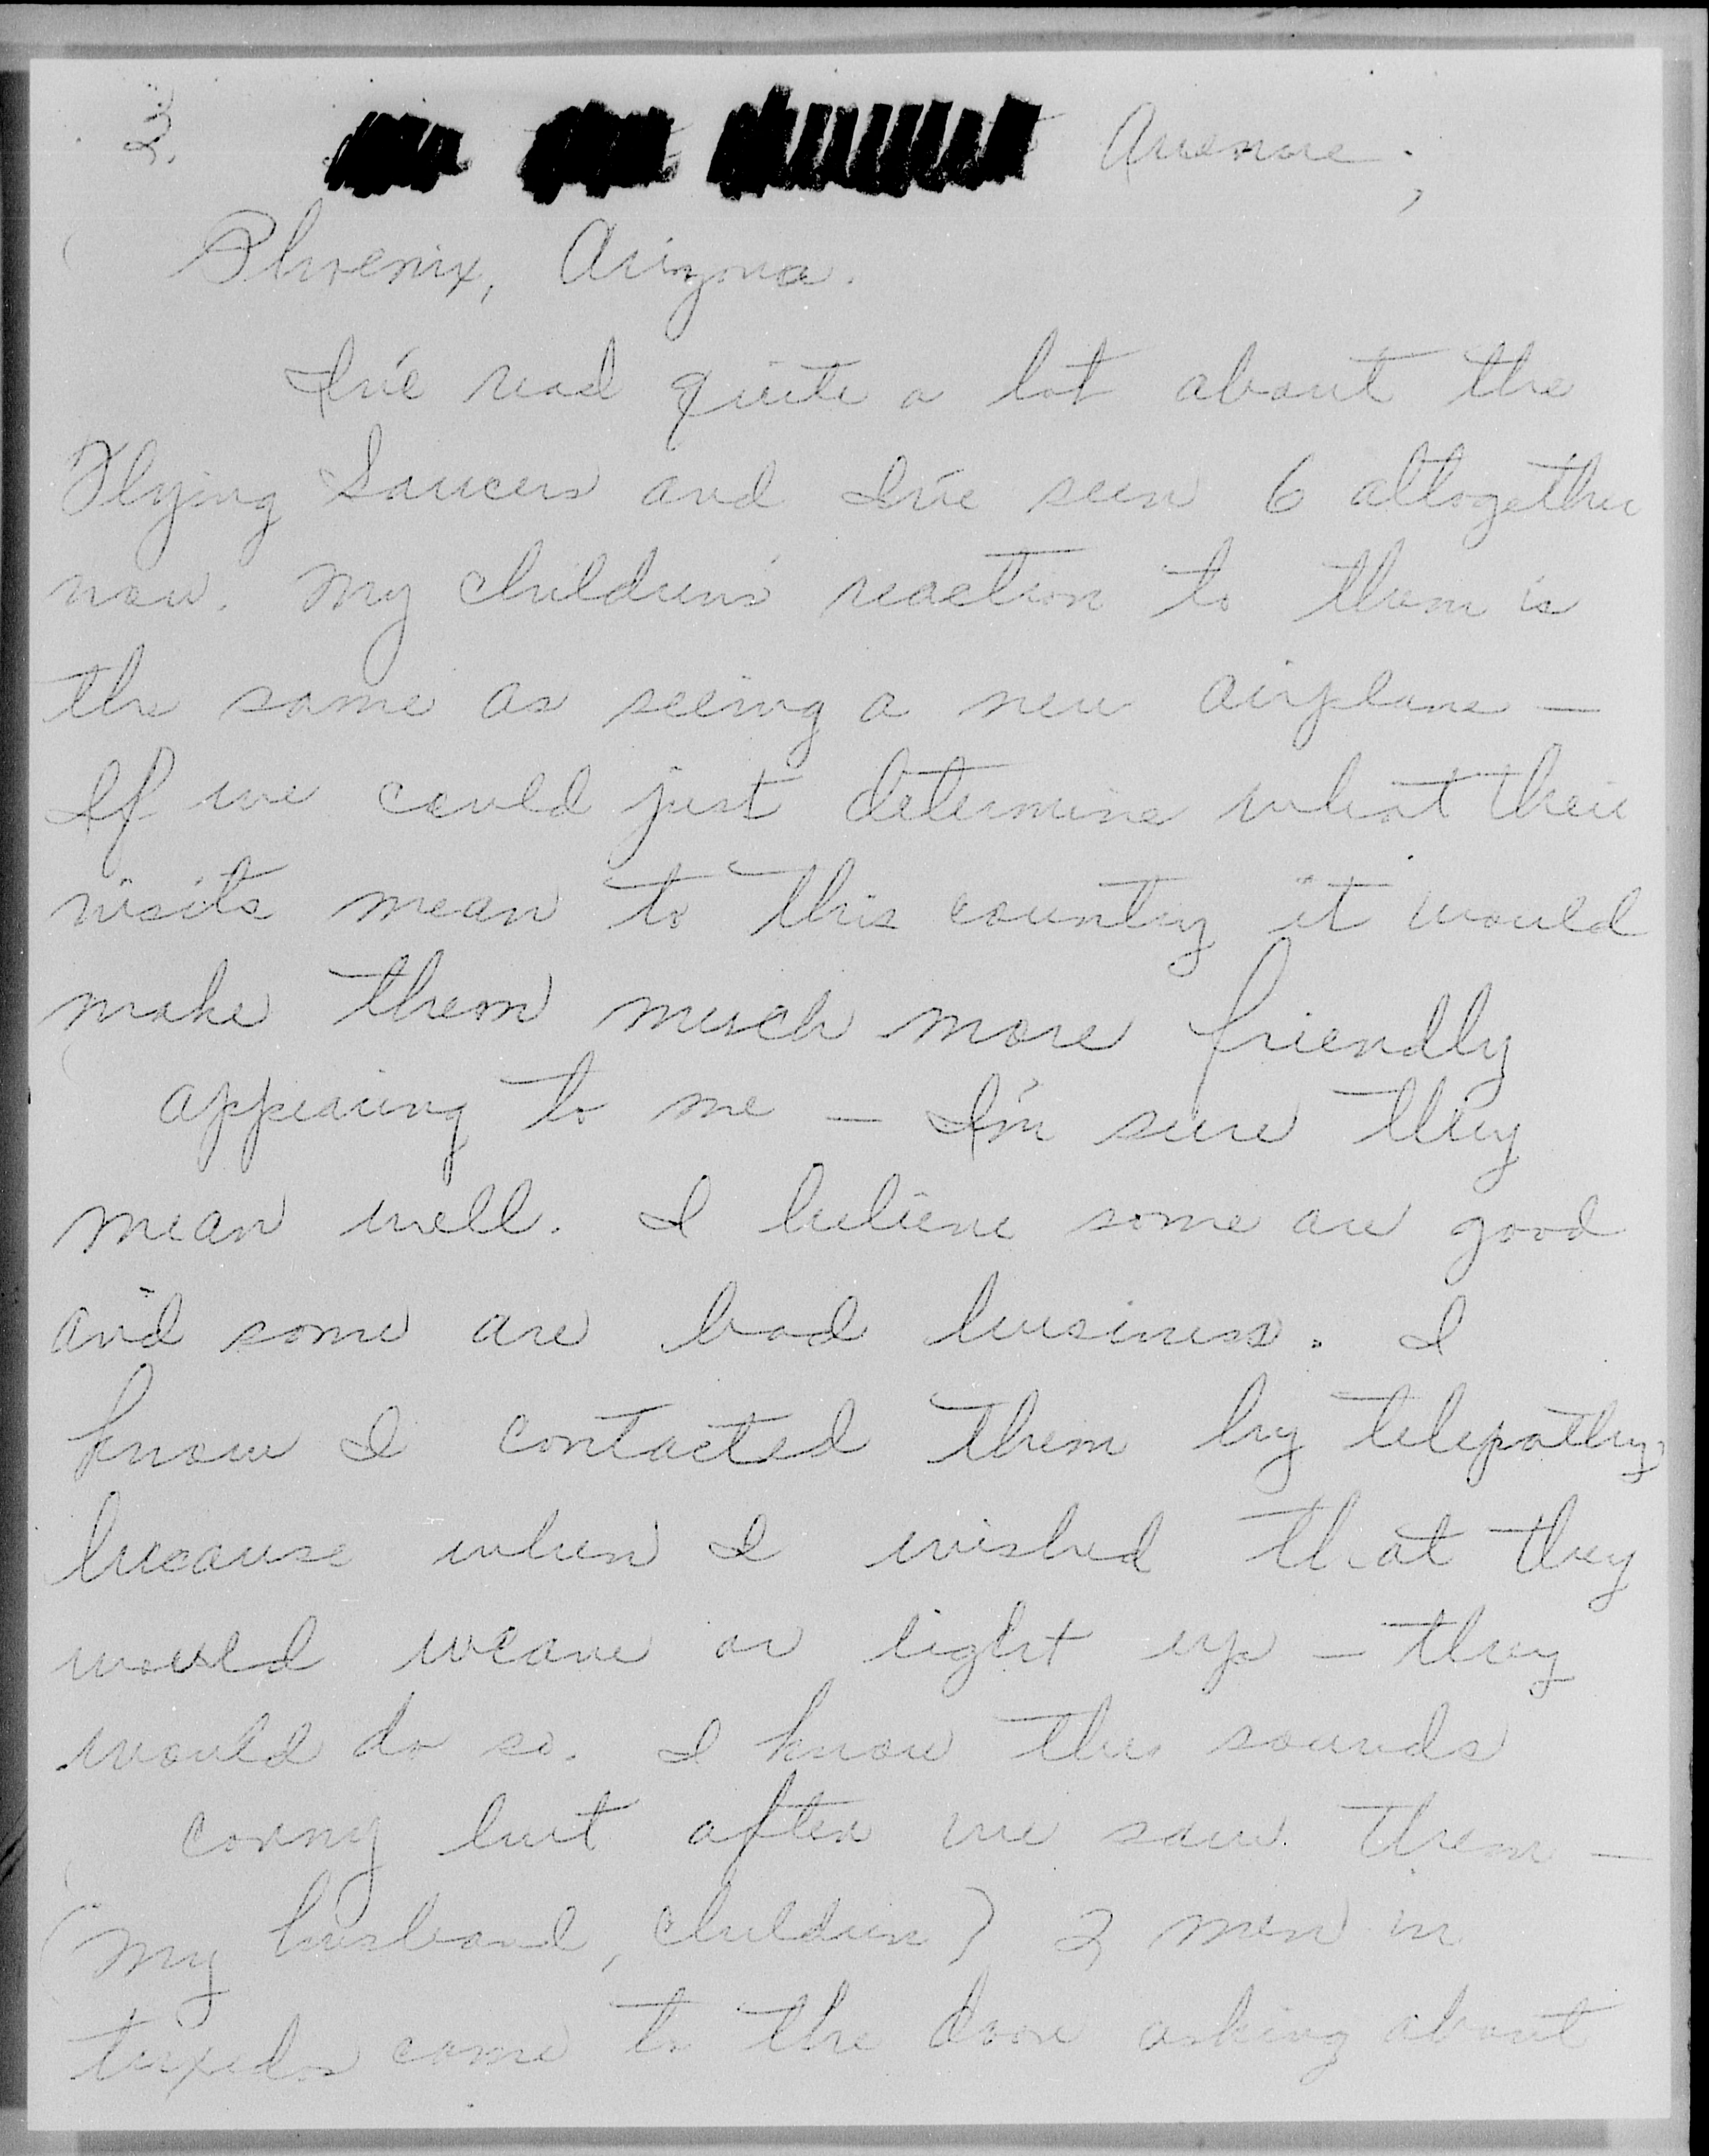 2. Avenue,
Phoenix, Arizona.
I've read quite a lot about the
Flying Saucers and I've seen 6 altogether
now. My children's reaction to them is
the same as seeing a new airplane —
If we could just determine what their
visits mean to this country it would
make them much more friendly
appearing to me — I'm sure they
mean well. I believe some are good
and some are bad business. I
know I contacted them by telepathy
because when I wished that they
would weave or light up — they
would do so. I know this sounds
corny but after we saw them —
(my husband, children) 2 men in
tuxedos came to the door asking about